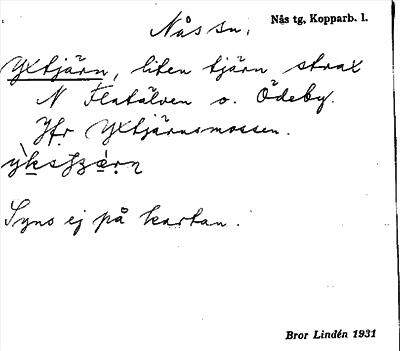 Nås sn. Nås tg, Kopparb. l.
Yxtjärn, liten tjärn strax
N Flatälven o. Ödeby.
Jfr Yxtjärnsmossen.
Syns ej på kartan.
Bror Lindén 1931